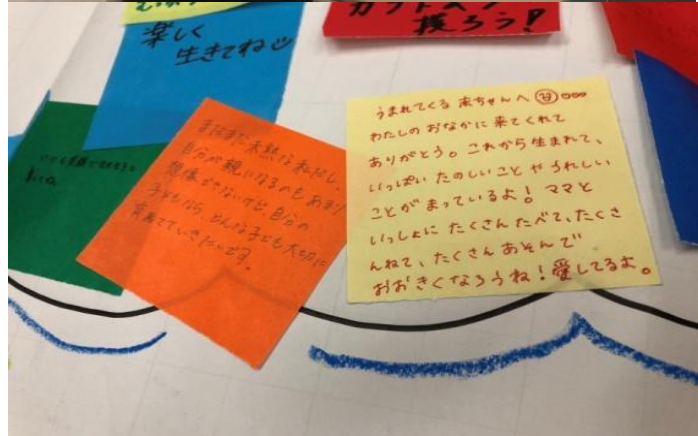 楽しく
生きてね
撮ろう!
まだまだ未熟な私だし、
自分が親になるのもあまり
想像できないけど、自分の
子どもなら、どんな子でも大切に
育てていきたいです。
うまれてくる赤ちゃんへ
わたしのおなかに来てくれて
ありがとう。これから生まれて、
いっぱいたのしいことやうれしい
ことがまっているよ!ママと
いっしょにたくさんたべて、たくさ
んねて、たくさんあそんで
おおきくなろうね!愛してるよ。